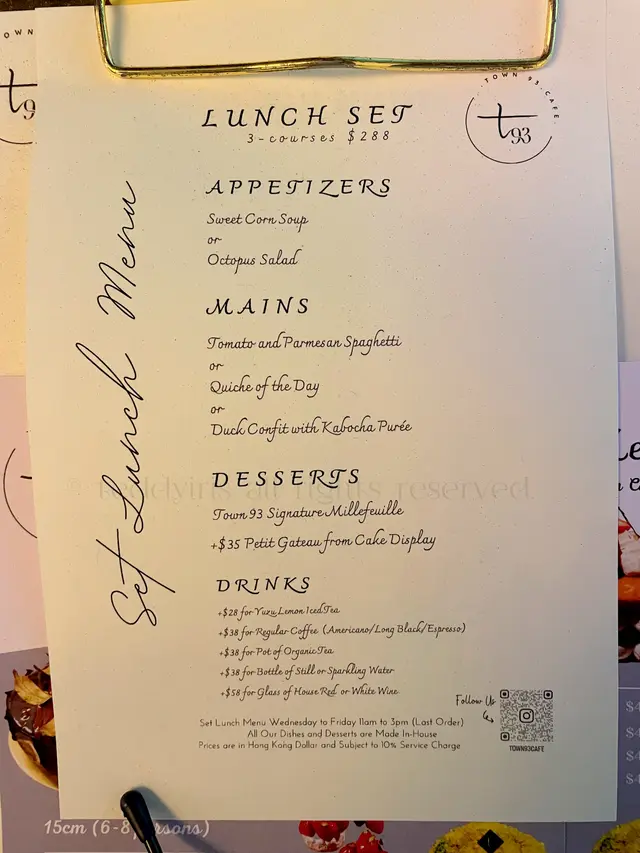 TOWN 93 CAFE
t93
LUNCH SET
3-courses $288
Set Lunch Menu
APPETIZERS
Sweet Corn Soup
or
Octopus Salad
MAINS
Tomato and Parmesan Spaghetti
or
Quiche of the Day
or
Duck Confit with Kabocha Purée
DESSERTS
© teddyiris all rights reserved
Town 93 Signature Millefeuille
+$35 Petit Gateau from Cake Display
DRINKS
+$28 for Yuzu Lemon Iced Tea
+$38 for Regular Coffee (Americano/Long Black/Espresso)
+$38 for Pot of Organic Tea
+$38 for Bottle of Still or Sparkling Water
+$58 for Glass of House Red or White Wine
Follow Us
TOWN93CAFE
Set Lunch Menu Wednesday to Friday 11am to 3pm (Last Order)
All Our Dishes and Desserts are Made In-House
Prices are in Hong Kong Dollar and Subject to 10% Service Charge
15cm (6-8 persons)